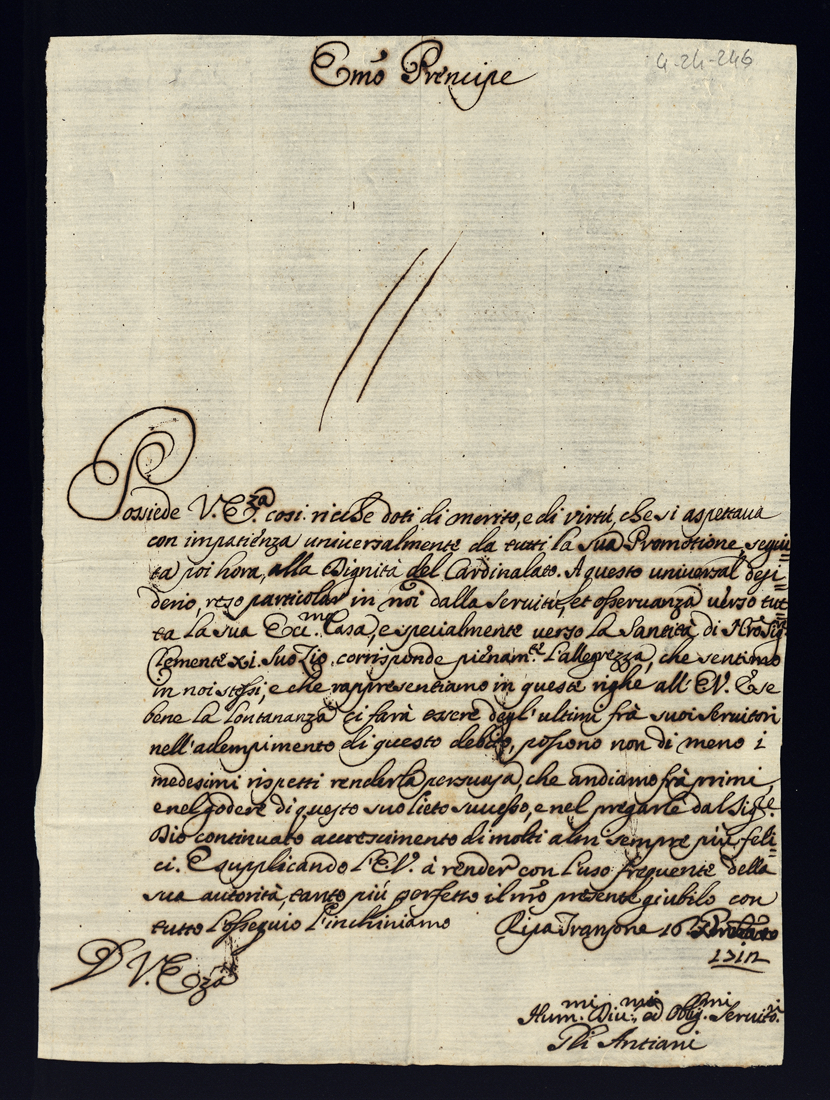 Emo Principe
4-24-246
Possiede V. E.za così ricche doti di merito, e di virtù, che si aspettaua
con impatienza uniuersalmente da tutti la sua Promotione, segui=
ta poi hora, alla Dignità del Cardinalato. A questo uniuersal desi=
derio, reso particolar in noi dalla seruitù, et osseruanza uerso tut=
ta la sua Ecc.ma Casa, e specialmente uerso la Santità di Nro Sig.
Clemente XI. suo Zio, corrisponde pienam.te l'allegrezza, che sentimo
in noi stessi, e che rappresentiamo in queste righe all' E.V. E se
bene la lontananza ci farà essere degl'ultimi frà suoi seruitori
nell'adempimento di questo debito, possono non di meno i
medesimi rispetti renderla persuasa, che andiamo frà primi,
e nel godere di questo suo lieto successo, e nel pregarle dal Sig.re
Dio continuato accrescimento di molti altri sempre più feli=
ci. E supplicando l'E.V. à render con l'uso frequente della
sua autorità, tanto più perfetto il nro presente giubilo con
tutto l'ossequio l'inchiniamo Ripa Transone 16
D V. E.za
Hum.mi Diu.mi ed Obl.mi Seruito.ri
Gli Antiani